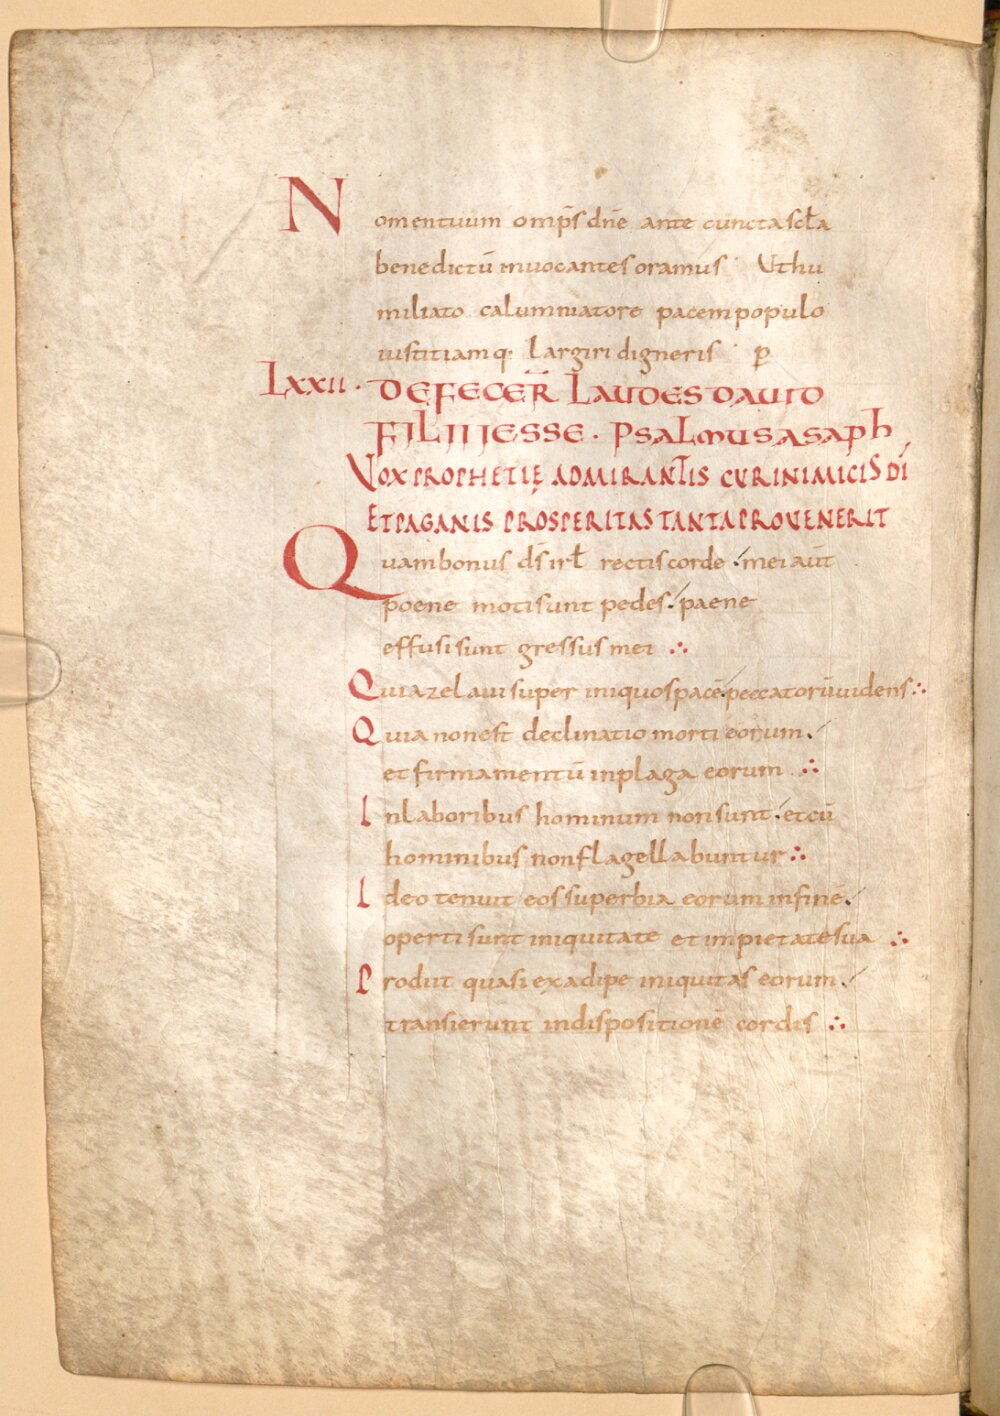 Nomentuum omp̄s dn̄e ante cuncta scl̄a
benedictū invocantes oramus Uthu
miliato calumniatore pacem populo
iustitiamq· largiri digneris p̱
LXXII· DEFECER̄ LAUDES DAUID
FILII IESSE· PSALMUS ASAPH
VOX PROPHETIĘ ADMIRANTIS CUR INIMICIS DĪ
ET PAGANIS PROSPERITAS TANTA PROVENERIT
Quam bonus ds̄ irl̄ rectis corde ·/ mei aūt
poene moti sunt pedes ·/ paene
effusi sunt gressus mei ∴
Quia zelavi super iniquos pacē peccatorū videns ∴
Quia non est declinatio morti eorum ·/
et firmamentū in plaga eorum ∴
In laboribus hominum non sunt ·/ et cū
hominibus non flagellabuntur ∴
Ideo tenuit eos superbia eorum in finē ·/
operti sunt iniquitate et impietate sua ∴
Prodiit quasi ex adipe iniquitas eorum ·/
transierunt in dispositionē cordis ∴